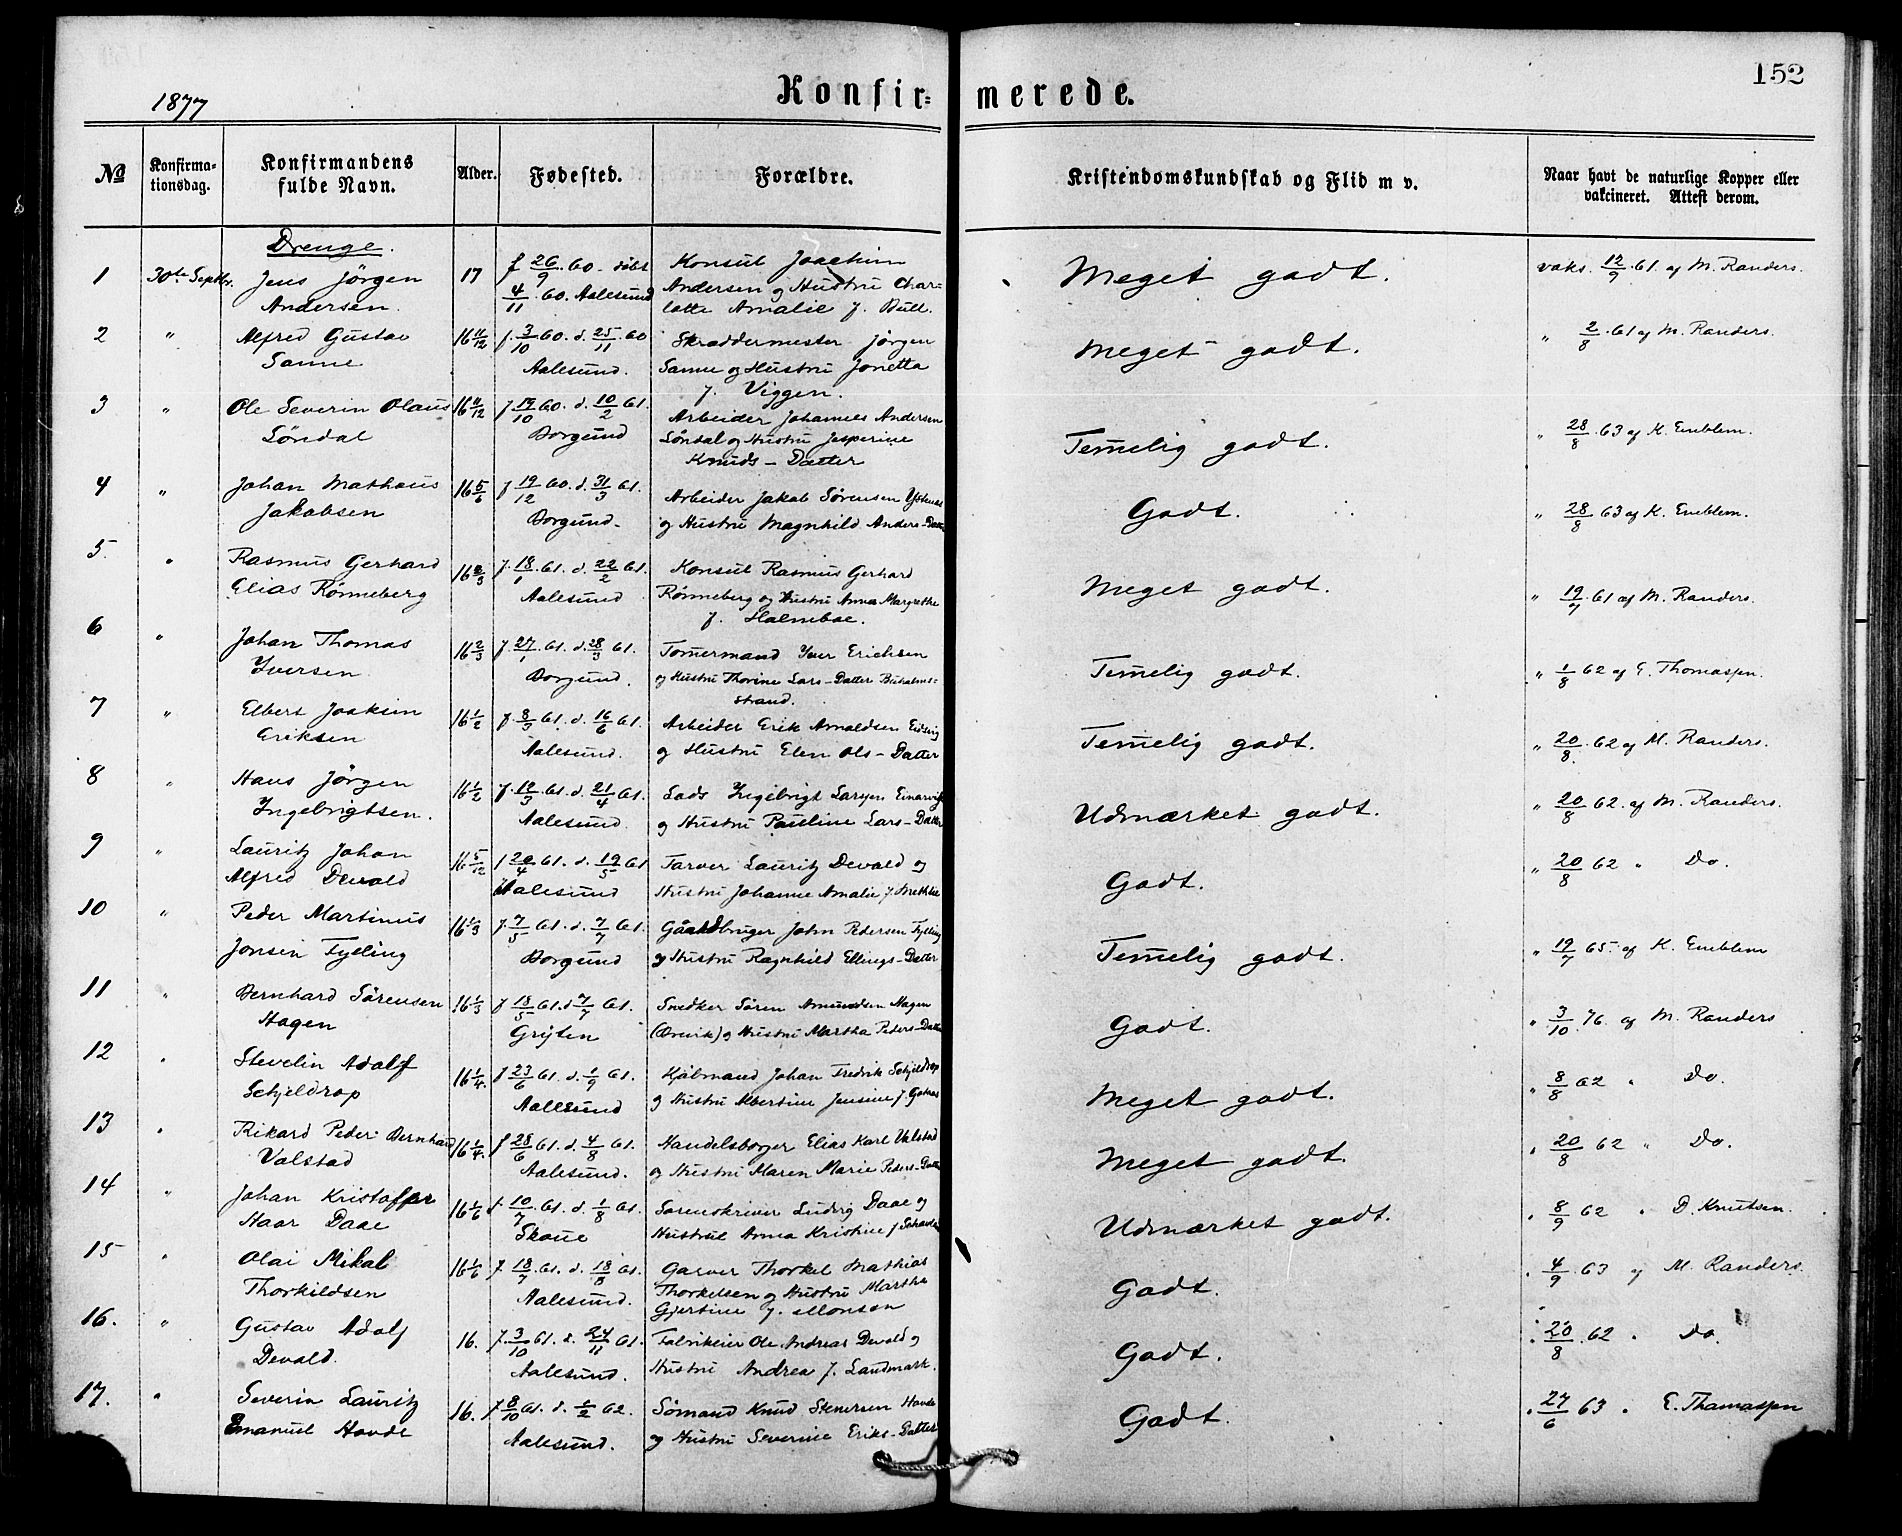 152
1877
Konfir- merede.
No
Konfirma-
tionsdag.
Konfirmandens
fulde Navn.
Alder.
Fødested.
Forældre.
Kristendomskundskab og Flid m v.
Naar havt de naturlige Kopper eller
vakcineret. Attest derom.
Drenge.
1 30te Septbr. Jens Jörgen 17 f 26/9 60. döbt Konsul Joachim Meget godt. vaks. 12/9 61. af M. Randers.
Andersen. 4/11 60. Aalesund Andersen og Hustru Char-
lotte Amalie f. Bull.
2 " Alfred Gustav 16 11/12 f. 3/10 60. d. 25/11 60 Skræddermester Jörgen Meget godt. " 2/8 61 af M. Randers.
Sanne Aalesund. Sanne og Hustru Jonetta
f. Viggen.
3 " Ole Severin Olaus 16 11/12 f 19/10 60. d. 10/2 61. Arbeider Johannes Andersen Temelig godt. " 28/8 63 af K. Emblem.
Löndal Borgund Löndal og Hustru Jesperine
Knuds-Datter
4 " Johan Mathæus 16 5/6 f 19/12 60. d. 31/3 61. Arbeider Jakob Sörensen Godt. " 28/8 63 af K. Emblem.
Jakobsen Borgund. og Hustru Magnhild Anders-Datter
5. " Rasmus Gerhard 16 2/3 f. 18/1 61. d. 22/2 61. Konsul Rasmus Gerhard Meget godt. " 19/7 61 af M. Randers.
Elias Rönneberg Aalesund Rönneberg og Hustru Anna Margrethe
f. Holmeboe.
6 " Johan Thomas 16 2/3 f. 27/1 61. d. 28/3 61. Tömermand Iver Erichsen Temelig godt. " 1/8 62 af E. Thomassen.
Iversen Borgund. og Hustru Thorine Lars-Datter Buholms-
strand.
7 " Elbert Joakim 16 1/2 f. 8/3 61. d. 16/6 61. Arbeider Erik Arnoldsen Temelig godt. " 20/8 62 af M. Randers.
Eriksen Aalesund. og Hustru Elen Ols-Datter
8 " Hans Jörgen 16 1/2 f. 12/3 61. d. 21/4 61. Lods Ingebrigt Larsen Udmærket godt. " 20/8 62. af M. Randers.
Ingebrigtsen. Aalesund. og Hustru Pauline Lars-Datter
9 " Lauritz Johan 16 5/12 f 20/4 61. d. 19/5 61 Farver Lauritz Devold og Godt. " 20/8 62 " Do.
Alfred Devold Aalesund Hustru Johanne Amalie f.
10 " Peder Martinus 16 1/3 f. 7/5 61. d. 7/7 61. Gaardbruger John Pedersen Fylling Temelig godt. " 19/7 65. af K. Emblem
Jonsen Fylling Borgund og Hustru Ragnhild Ellings-Datter
11 " Bernhard Sörensen 16 1/3 f 18/5 61. d 7/7 61. Snedker Sören Amundsen Hagen Godt. " 3/10 76. af M. Randers
Hagen Gryten og Hustru Martha Peders-Datter
12 " Stevelin Adolf 16 1/4 f 23/6 61. d. 1/9 61. Kjöbmand Johan Fredrik Schjeldrop Meget godt. " 8/8 62 " Do.
Schjeldrop Aalesund og Hustru Albertine Jensine f.
13 " Rikard Peder Bernhard 16 1/4 f 28/6 61. d. 4/8 61. Handelsborger Elias Karl Valstad Meget godt. " 20/8 62 " Do.
Valstad Aalesund. og Hustru Maren Marie Peders-Datter
14 " Johan Kristoffer 16 1/6 f. 10/7 61. d. 1/8 61. Sorenskriver Ludvig Daae og Udmærket godt. " 8/9 62 " D. Knutsen.
Haar Daae Skoue Hustru Anna Kristine f
15 " Olai Mikal 16 1/6 f. 18/7 61. d. 18/8 61. Garver Thorkel Mathias Godt. " 4/9 63 af M. Randers.
Thorkildsen Aalesund. Thorkelsen og Hustru Martha
Gjertine f. Monsen
16. " Gustav Adolf 16. f. 3/10 61. d. 24/11 61. Fabrikeier Ole Andreas Devold og Godt. " 20/8 62 " Do.
Devold. Aalesund. Hustru Andrea f. Landmark.
17. " Severin Lauritz 16. f 8/10 61. d. 1/2 62. Sömand Knud Stenersen Hovde Godt. " 27/6 63 " E. Thomassen
Emanuel Hovde Aalesund. og Hustru Severine Eriks-Datter